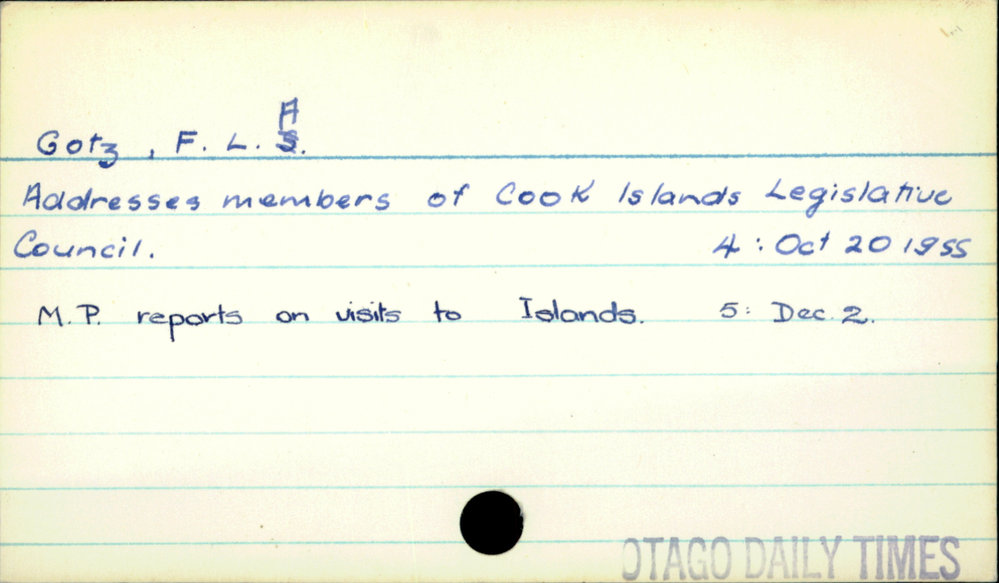 Gotz, F. L. A.
Addresses members of Cook Islands Legislative
Council. 4 : Oct 20 1955
M.P. reports on visits to Islands. 5: Dec. 2.
OTAGO DAILY TIMES